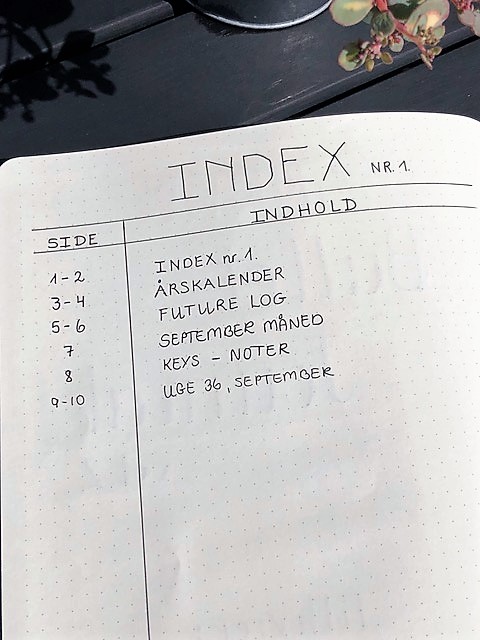 INDEX NR. 1.
SIDE INDHOLD
1-2 INDEX nr. 1.
3-4 ÅRSKALENDER
5-6 FUTURE LOG
7 SEPTEMBER MÅNED
8 KEYS - NOTER
9-10 UGE 36, SEPTEMBER